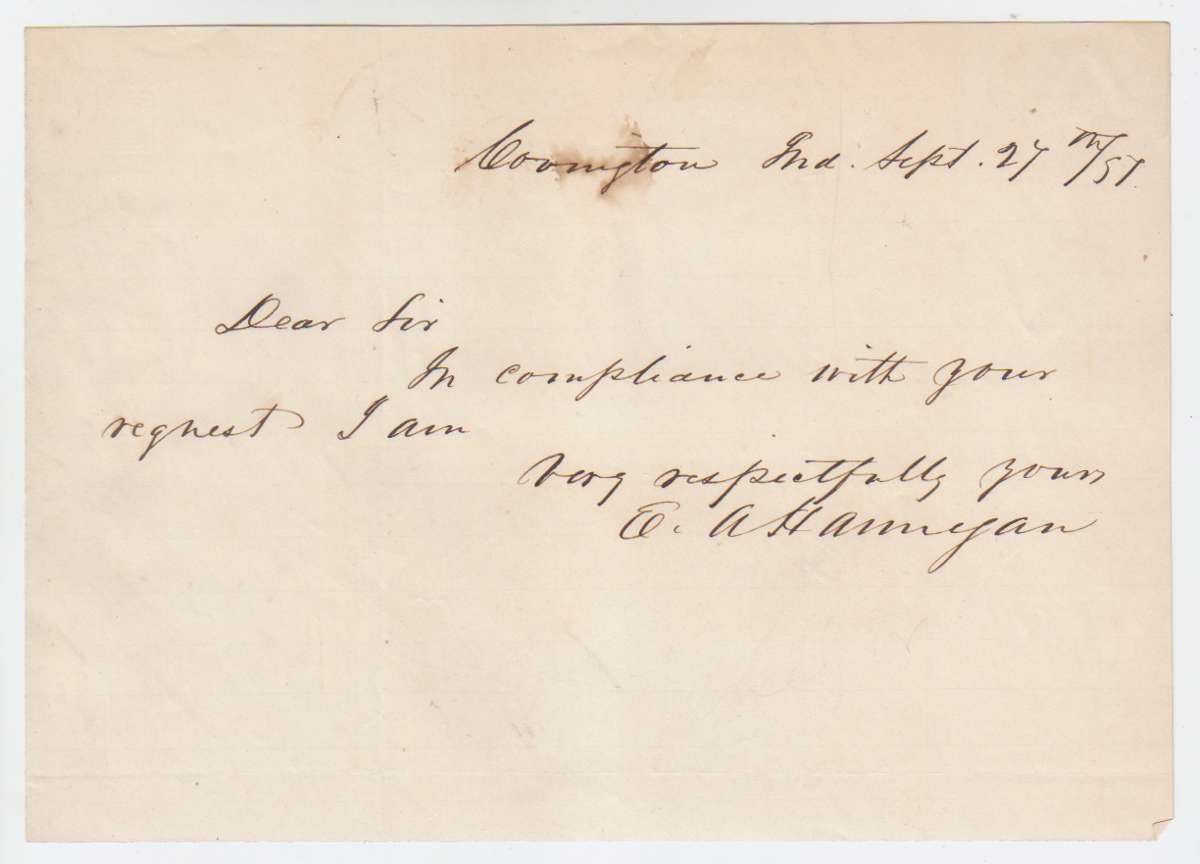 Covington Ind. Sept. 27th/57
Dear Sir
In compliance with your
request I am
Very respectfully yours
E. A Hannegan